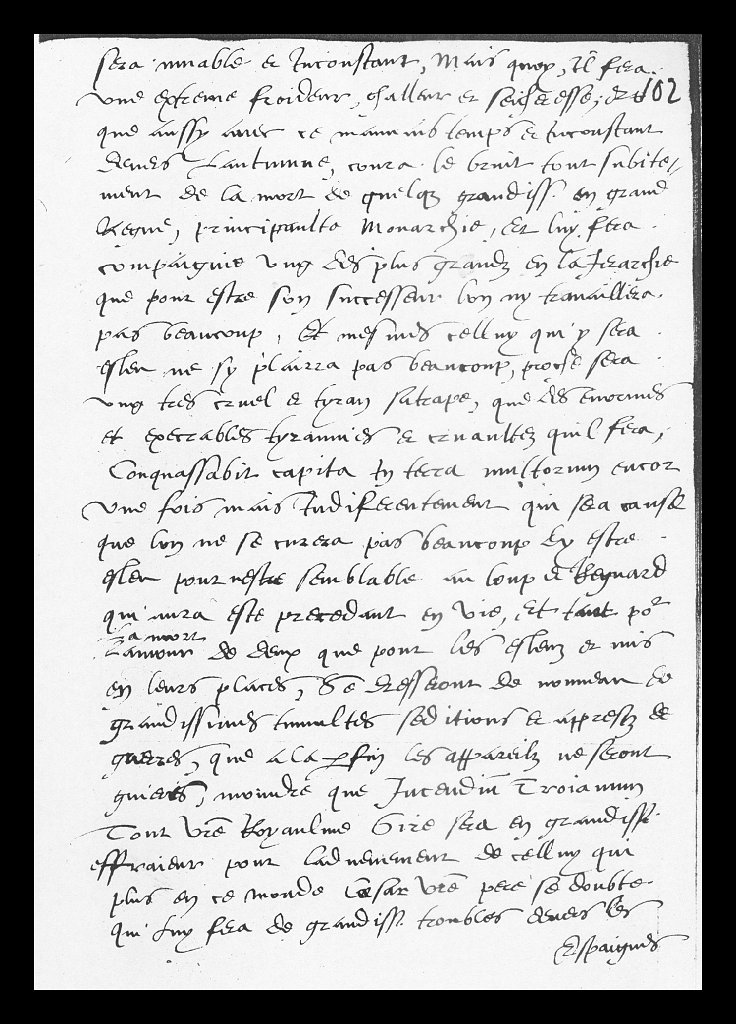 sera muable et Inconstant, Mais quoy, Il fera
102
une extreme froideur, challeur et seicheresse, et
que aussy avec ce mauvais temps et Inconstant
devers Lautumne, coura le bruit tout subite-
ment de la mort de quelq grandiss. en grand
Regne, principaulte Monarchie, Et luy fera
compaignie ung des plus grandz en la Jerarchie
que pour estre son successeur lon ny travaillera
pas beaucoup, Et mesmes celluy qui y sera
esleu ne sy plairra pas beaucoup, proche sera
ung tres cruel et tyran satrape, que des enormes
et execrables tyrannies et cruaultez quil fera,
Conquassabit capita In terra multorum encor
une fois mais Indiferentement qui sera cause
que lon ne se curera pas beaucoup dy estre
esleu pour nestre semblable au loup et Regnard
qui aura este precedant en vie, Et tant por
La mort
Lamour de deux que pour les esleuz et mis
en leurs places, Se dresseront de nouveau de
grandissimes tumultes seditions et apprestz de
guerres, que a la parfin les appareilz ne seront
guieres, moindre que Incendiu Troianum
Tout vre Royaulme Sire sera en grandiss.
effraieur pour ladvenement de celluy qui
plus en ce monde Cesar vre pere se doubte
qui luy fera de grandiss. troubles devers les
Espaignes